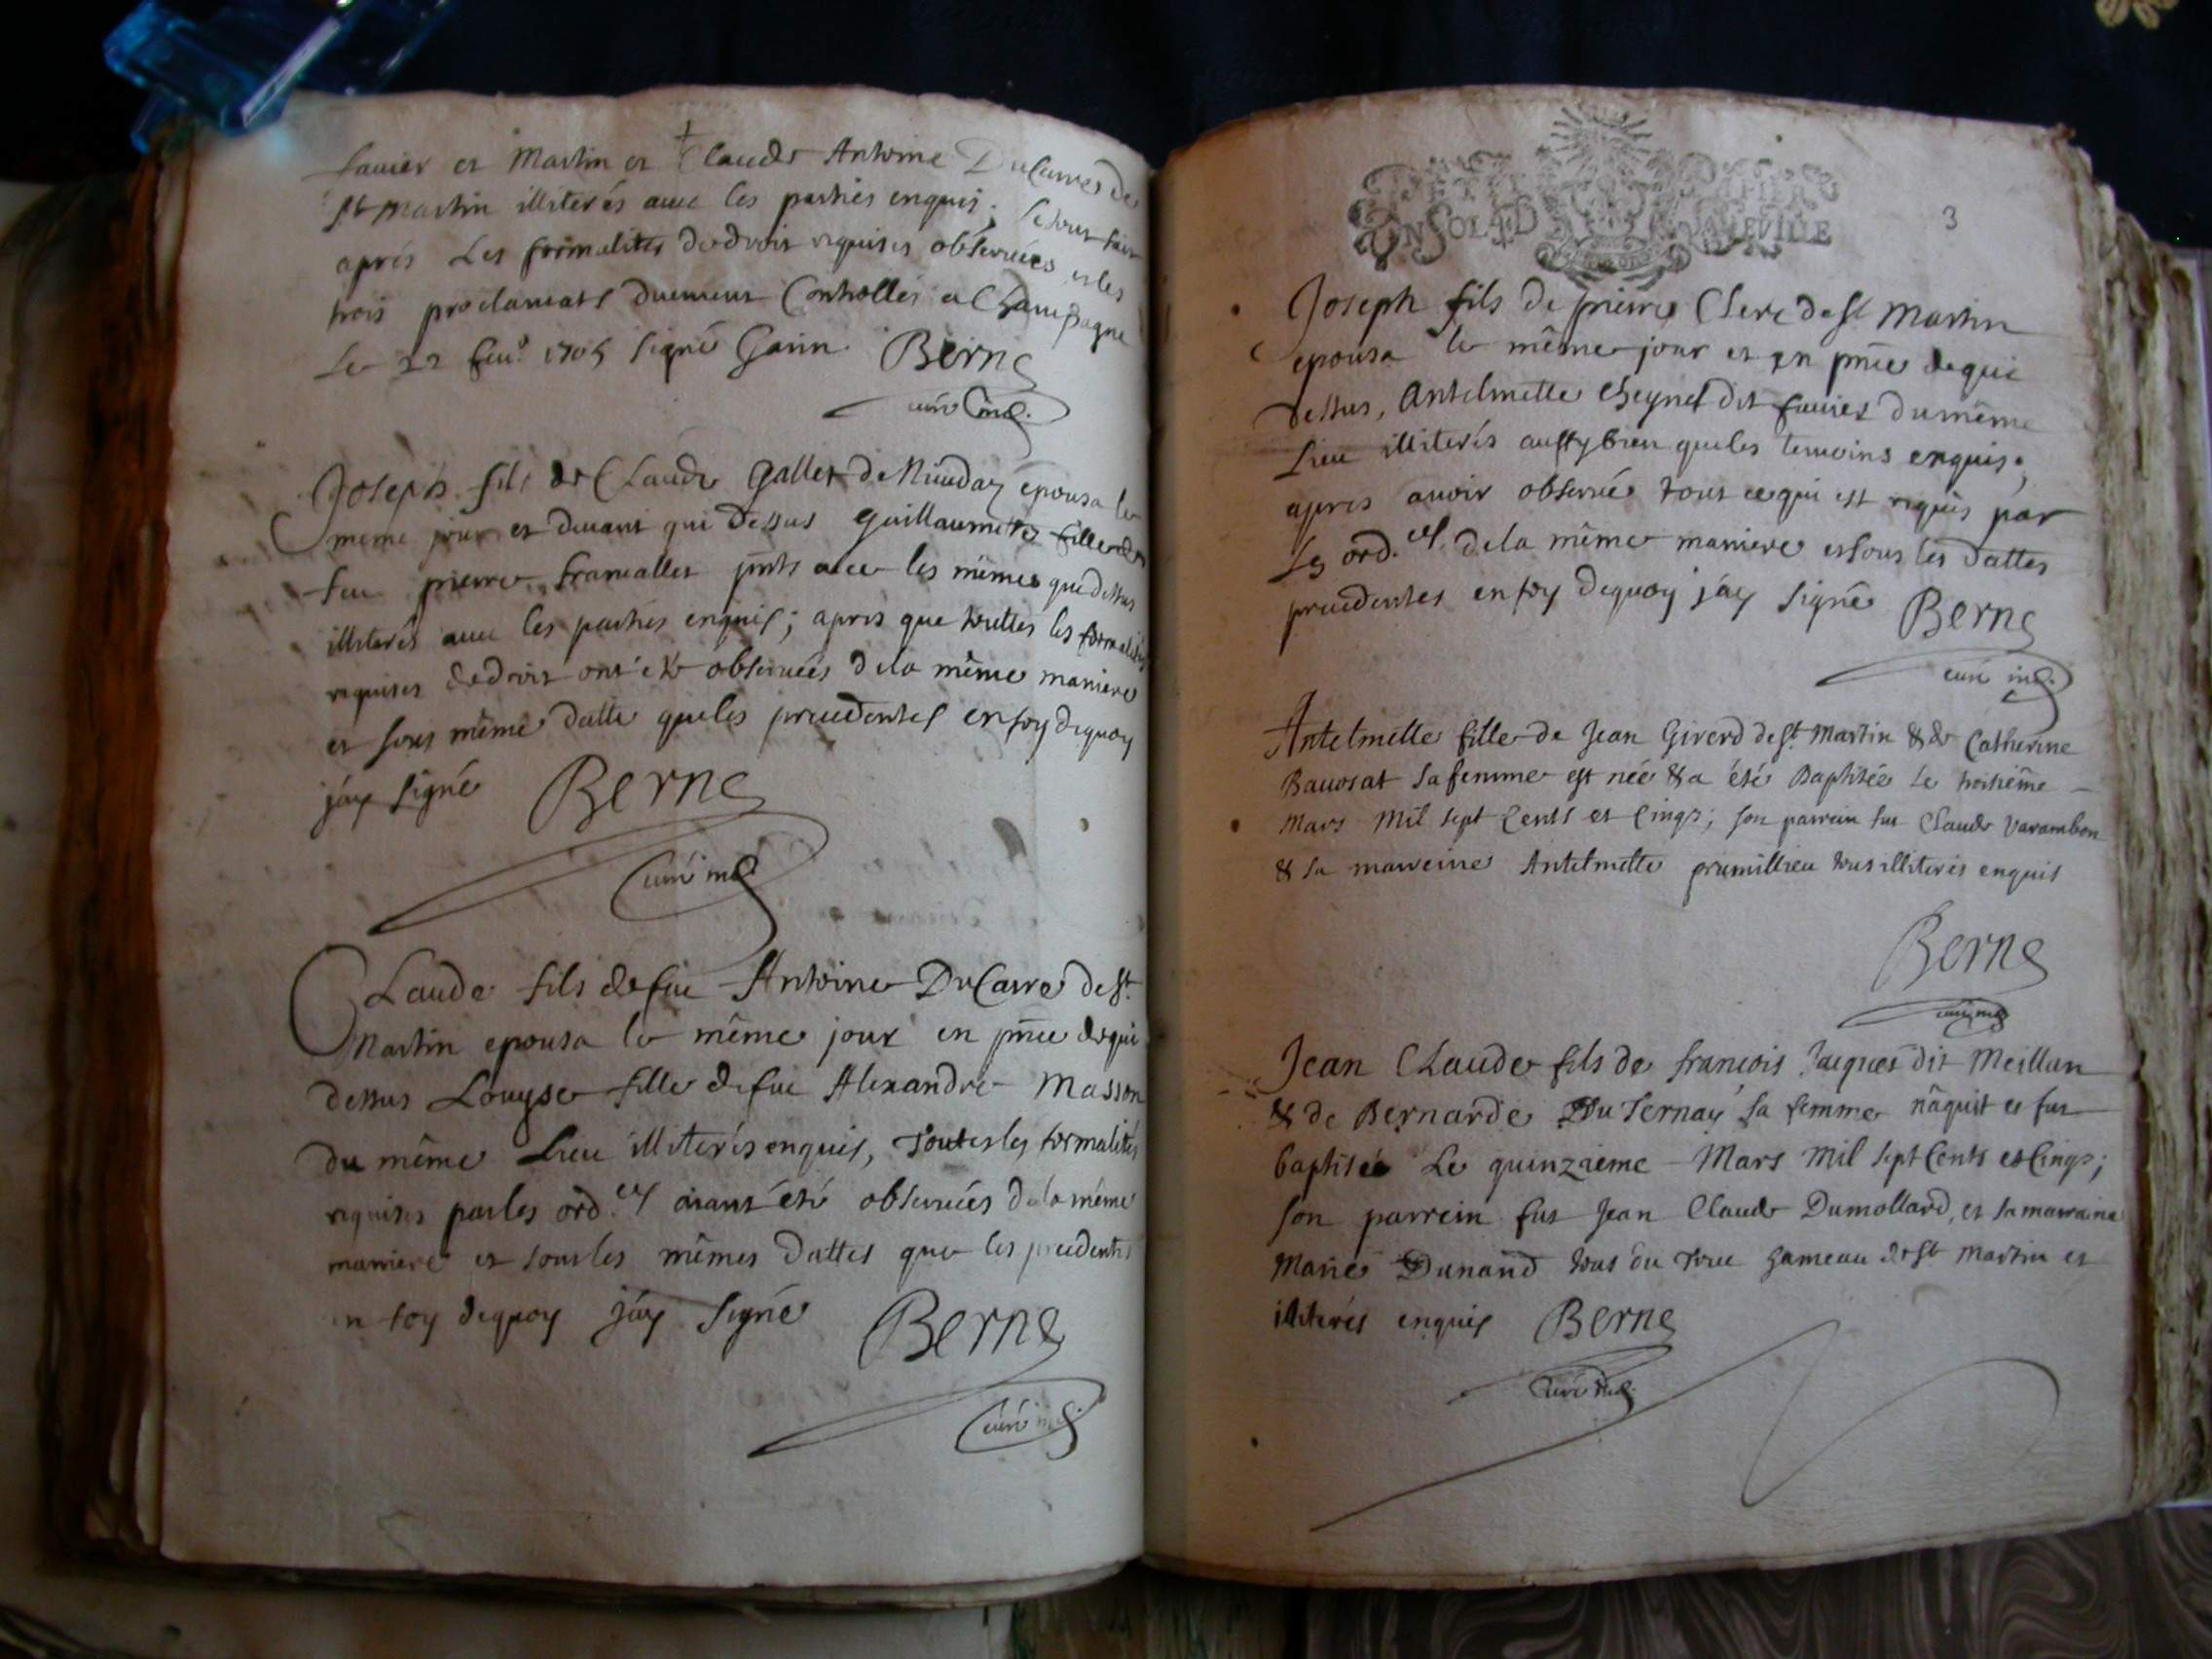 favier et Martin et Claude Antoine DuCarre de
St Martin illiterés avec les parties enquis; le tout fait
aprés Les formalités de droit requises observées et les
trois proclamats duement Controllés a Champagne
Le 22 feu? 1705 signé Garin. Berne
curé ind.
Joseph fils de Claude Gallet de epousa le
meme jour et devant qui dessus Guillaumette fille de
feu pierre francallet pnts avec les mêmes que dessus
illiterés avec les parties enquis; apres que touttes les formalités
requises de droit ont été observées de la même maniere
et sous même datte que les precedentes en foy de quoy
j'ay signé Berne
curé ind
Claude fils de feu Antoine DuCarre de St
Martin epousa le même jour en pnce de qui
dessus Louyse fille de feu Alexandre Masson
du même Lieu illiterés enquis, Toutes les formalités
requises par les ord.ces aiant été observées de la même
maniere et sous les mêmes dattes que les precedentes
en foy de quoy j'ay signé Berne
curé ind
PETIT PAPIER
UN SOL 4 D LA FEUILLE
3
Joseph fils de pierre Clerc de St Martin
epousa le même jour et en pnce de qui
dessus, Antelmette Cheynel dit favier du même
Lieu illiterés aussy bien que les temoins enquis;
apres avoir observé tout ce qui est requis par
Les ord.ces de la même maniere et sous les dattes
precedentes en foy de quoy j'ay signé Berne
curé ind.
Antelmette fille de Jean Girerd de St Martin & de Catherine
Bavosat sa femme est née & a été Baptisée Le troisiême
Mars Mil sept Cents et Cinq; son parrein fut Claude Varambon
& sa marreine Antelmette prumillieu tous illiterés enquis
Berne
curé ind
Jean Claude fils de françois Jacques dit Meillan
& de Bernarde DuTernay sa femme nâquit et fut
baptisé Le quinzieme Mars Mil sept Cents et Cinq;
son parrein fut Jean Claude Dumollard, et sa marraine
Marie Dunand tous du hameau de St Martin et
illiterés enquis Berne
curé ind.